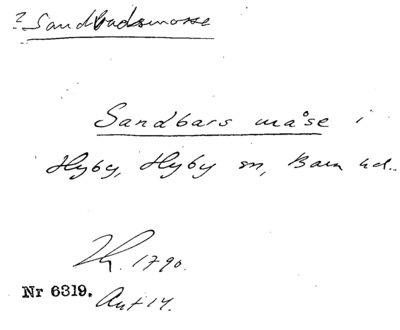 ? Sandbadsmosse
Sandbars måse i
Hyby, Hyby sn, Bara hd.
1790.
Nr 6319. Akt 14.